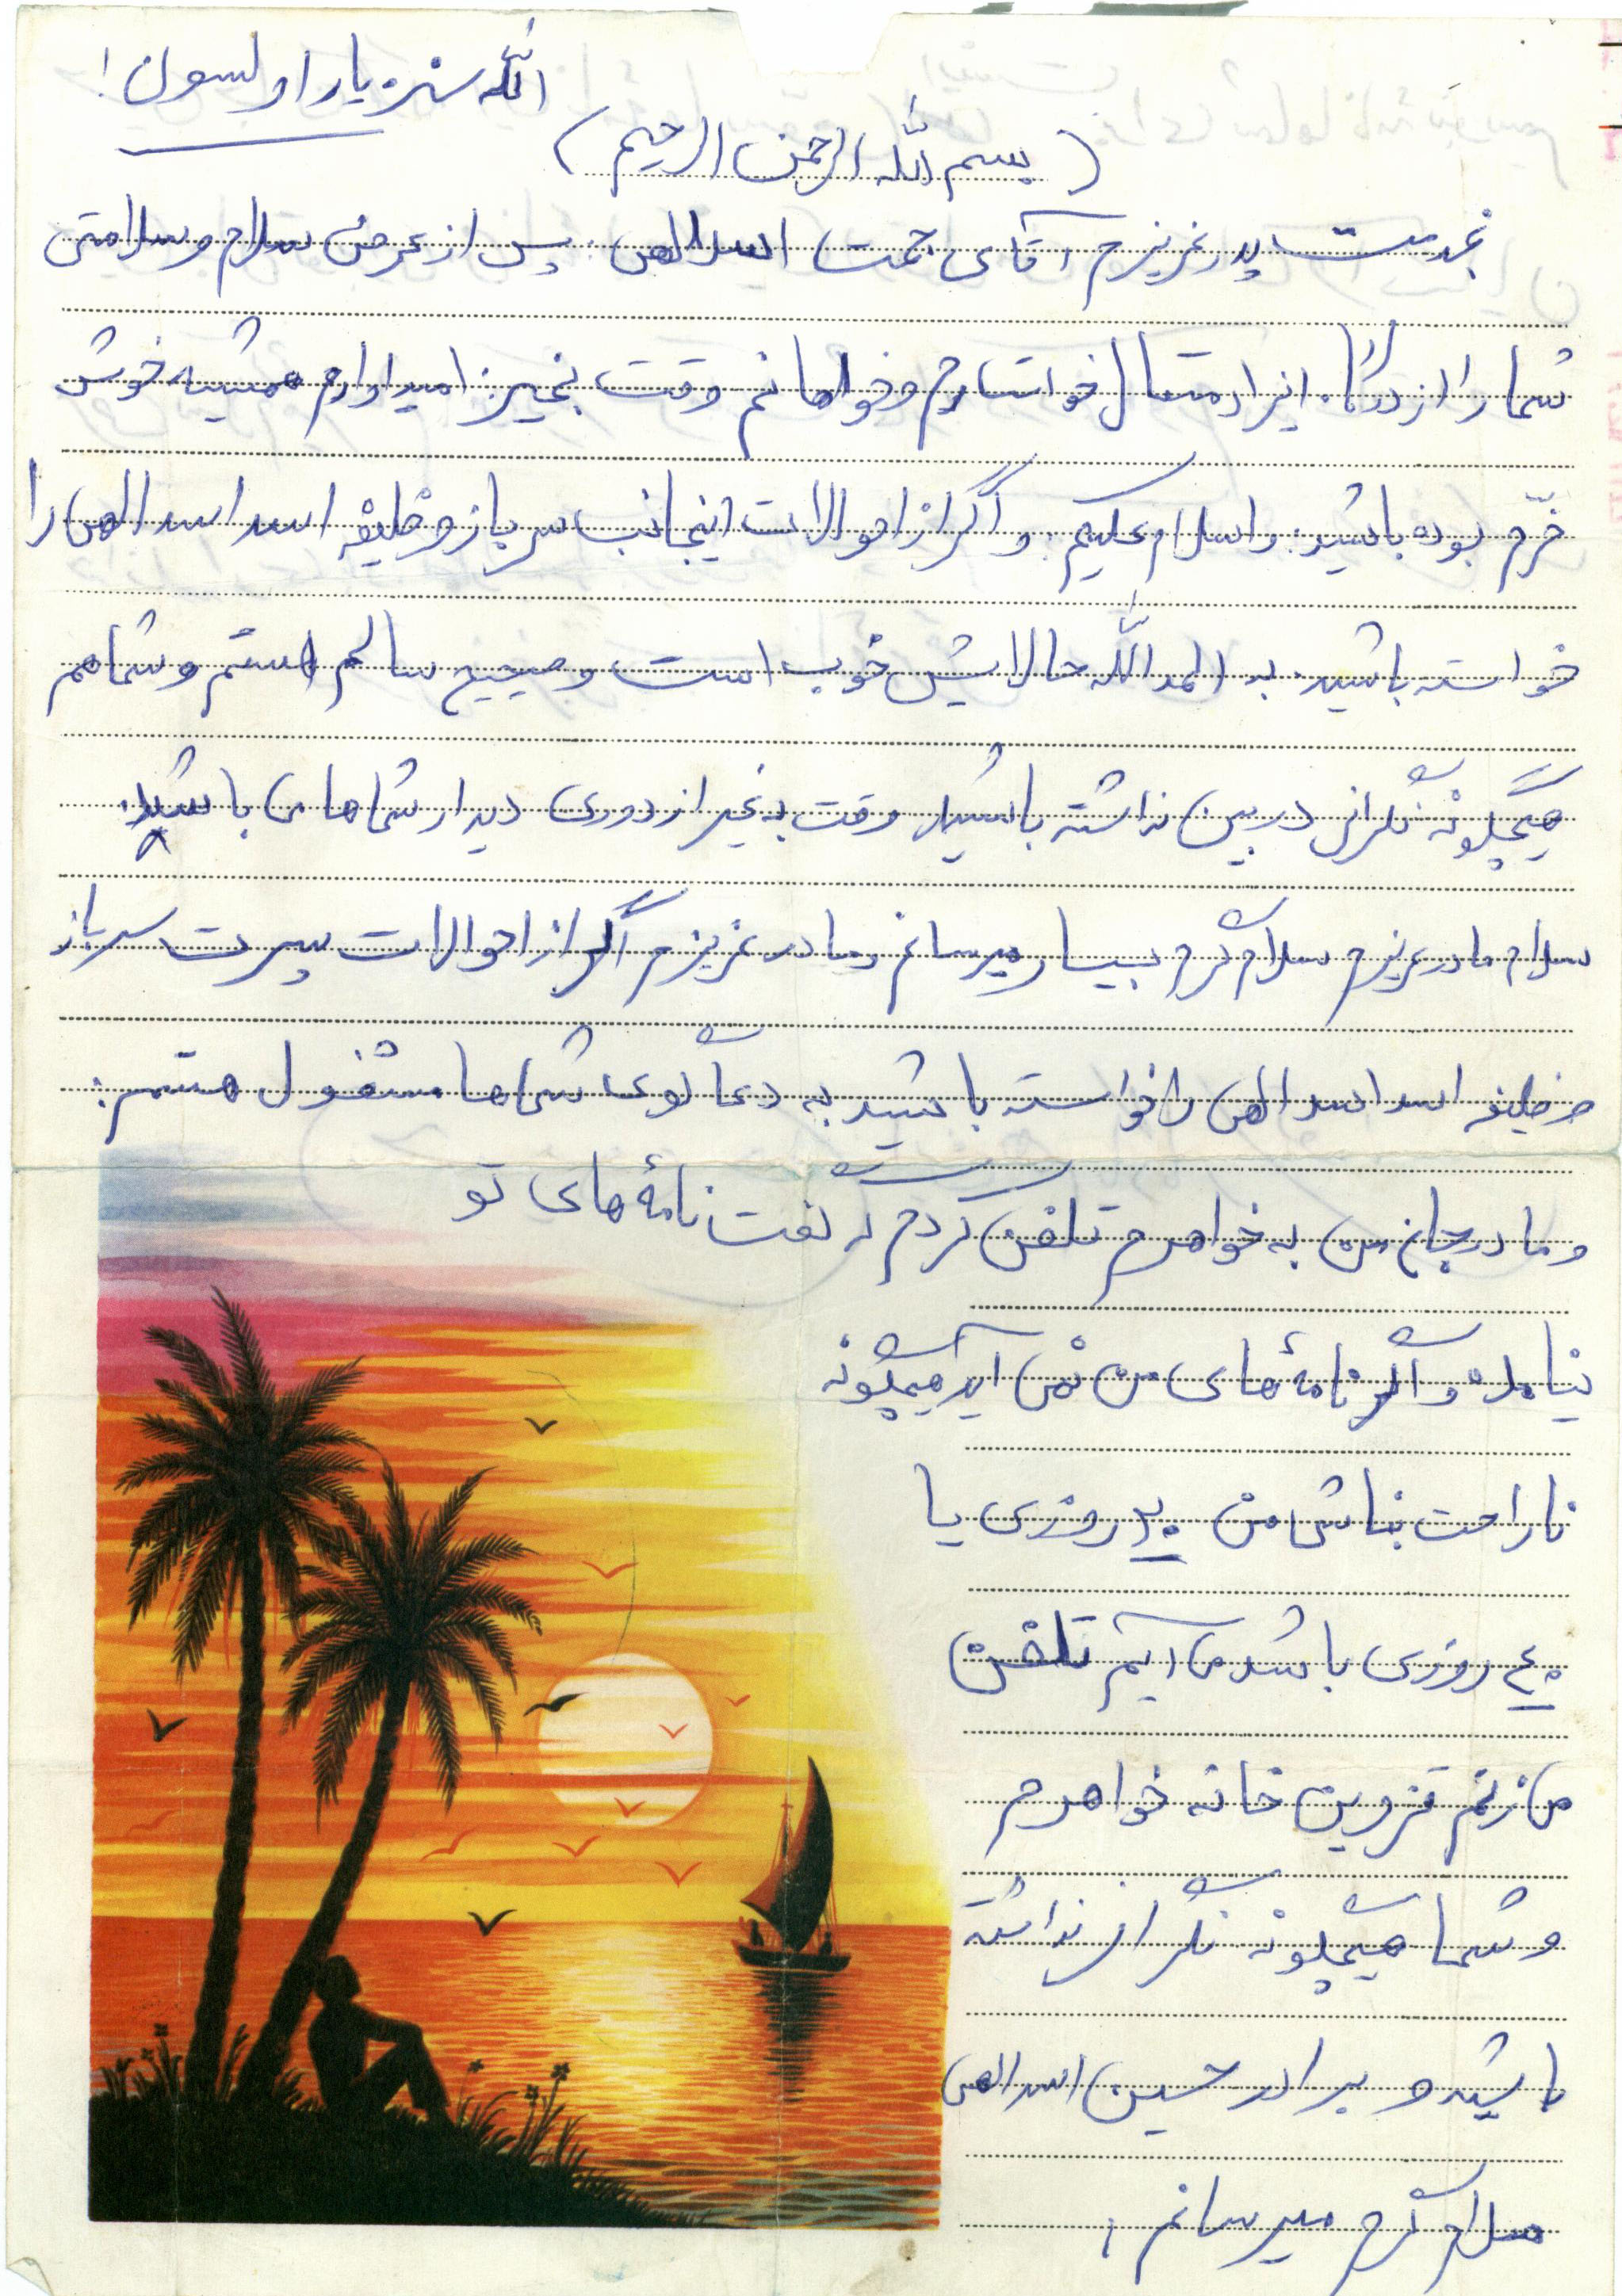 الله سنه یار اولسون!
(بسم الله الرحمن الرحیم)
بخدمت پدر عزیزم آقای حجت اسدالهی: پس از عرض سلام و سلامتی
شما را از درگاه ایزد متعال خواستارم و خواهانم وقت بخیر: امیداوارم همیشه خوش
خرّم بوده باشید: واسلام علیکم: و اگر از احوالات اینجانب سرباز وظیفه اسد اسدالهی را
خواسته باشید: به المدالله حالایش خوب است و صحیح سالم هستم و شماهم
هیچگونه نگرانی دربین نداشته باشید وقت به غیر از دوری دیدار شماها می باشد:
سلام مادر عزیزم سلام گرم بسیار میرسانم و مادر عزیزم اگر از احوالات پسرت سرباز
وظیفه اسد اسدالهی را خواسته باشید به دعا گوی شماها مشغول هستم:
و مادر جانم من به خواهرم تلفن کردم که گفت نامهٔ های تو
نیامده و اگر نامهٔ های من نمی آید هیچگونه
ناراحت نباش من ۳۰ روزی یا
۴۰ روزی باشد می آیم تلفن
می زنم قزوین خانه خواهرم
و شما هیچگونه نگرانی نداشته
باشید و برادر حسین اسدالهی
سلام گرم میرسانم: